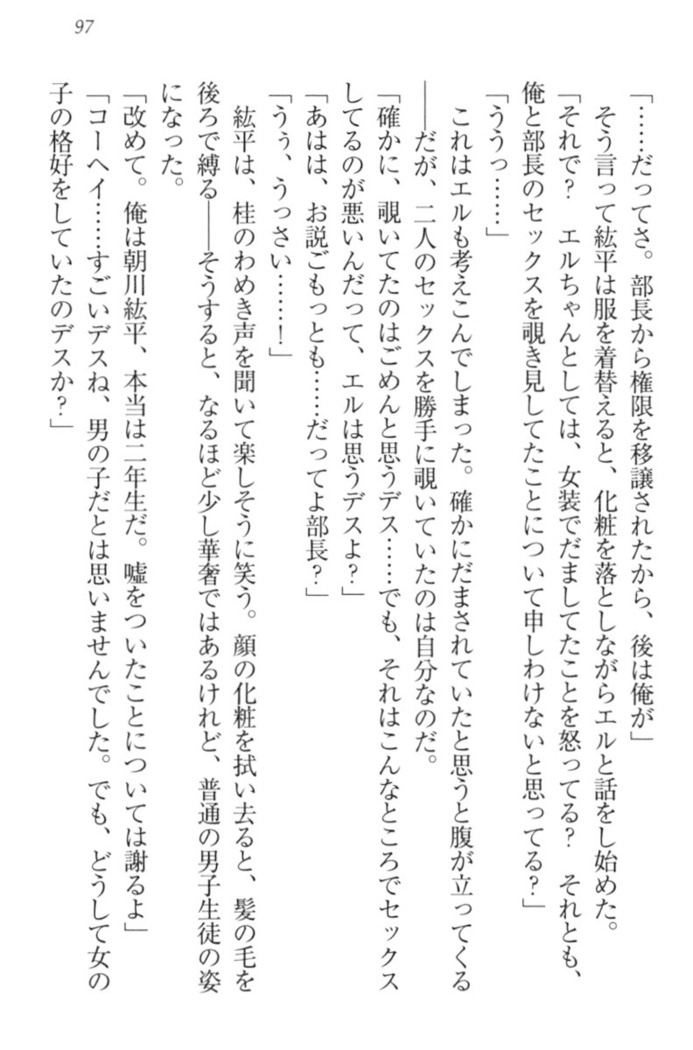 97
「……だってさ。部長から権限を移譲されたから、後は俺が」
そう言って紘平は服を着替えると、化粧を落としながらエルと話をし始めた。
「それで？　エルちゃんとしては、女装でだましてたことを怒ってる？　それとも、
俺と部長のセックスを覗き見してたことについて申しわけないと思ってる？」
「ううっ……」
これはエルも考えこんでしまった。確かにだまされていたと思うと腹が立ってくる
――だが、二人のセックスを勝手に覗いていたのは自分なのだ。
「確かに、覗いてたのはごめんと思うデス……でも、それはこんなところでセックス
してるのが悪いんだって、エルは思うデスよ？」
「あはは、お説ごもっとも……だってよ部長？」
「うぅ、うっさい……！」
紘平は、桂のわめき声を聞いて楽しそうに笑う。顔の化粧を拭い去ると、髪の毛を
後ろで縛る――そうすると、なるほど少し華奢ではあるけれど、普通の男子生徒の姿
になった。
「改めて。俺は朝川紘平、本当は二年生だ。嘘をついたことについては謝るよ」
「コーヘイ……すごいデスね、男の子だとは思いませんでした。でも、どうして女の
子の格好をしていたのデスか？」